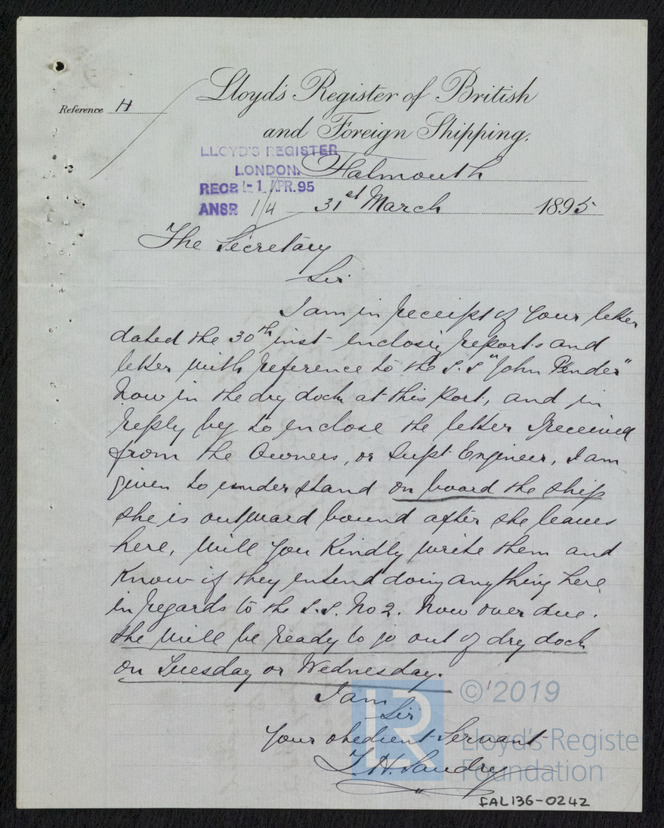 Lloyd's Register of British
and Foreign Shipping.
Reference H
LLOYD'S REGISTER
LONDON.
RECD - 1 APR. 95
ANSR 1/4
Falmouth
31st March 1895
The Secretary
Sir
I am in receipt of your letter
dated the 30th inst- enclosing reports and
letter with reference to the S.S "John Pender"
now in the dry dock at this Port, and in
reply beg to enclose the letter I received
from the Owners, or Supt Engineer, I am
given to understand on board the ship
she is outward bound after she leaves
here, Will you Kindly write them and
Know if they entend doing anything here
in regards to the S.S. No 2. Now over due.
She will be ready to go out of dry dock
on Tuesday or Wednesday.
I am
Sir
Your obedient Servant
H. Sandry
© 2019
LR
Lloyd's Registe
Foundation
FAL136-0242